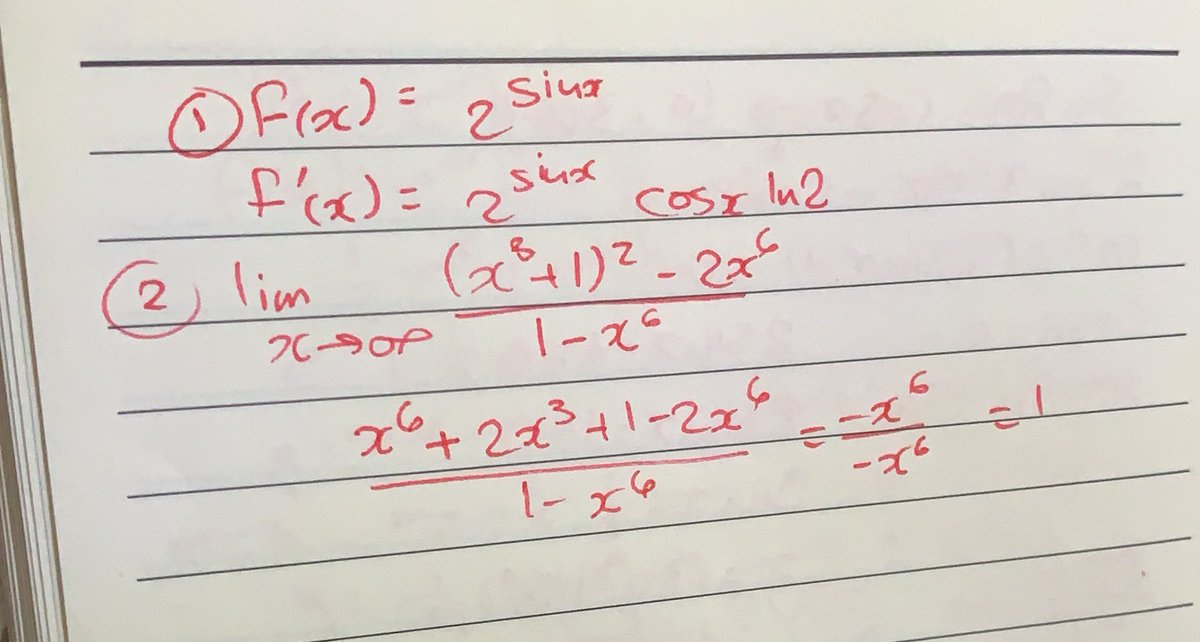 ① f(x) = 2^sinx
f'(x) = 2^sinx cosx ln2
② lim x→∞ ((x³+1)² - 2x⁶)/(1-x⁶)
(x⁶ + 2x³ + 1 - 2x⁶)/(1 - x⁶) = (-x⁶)/(-x⁶) = 1